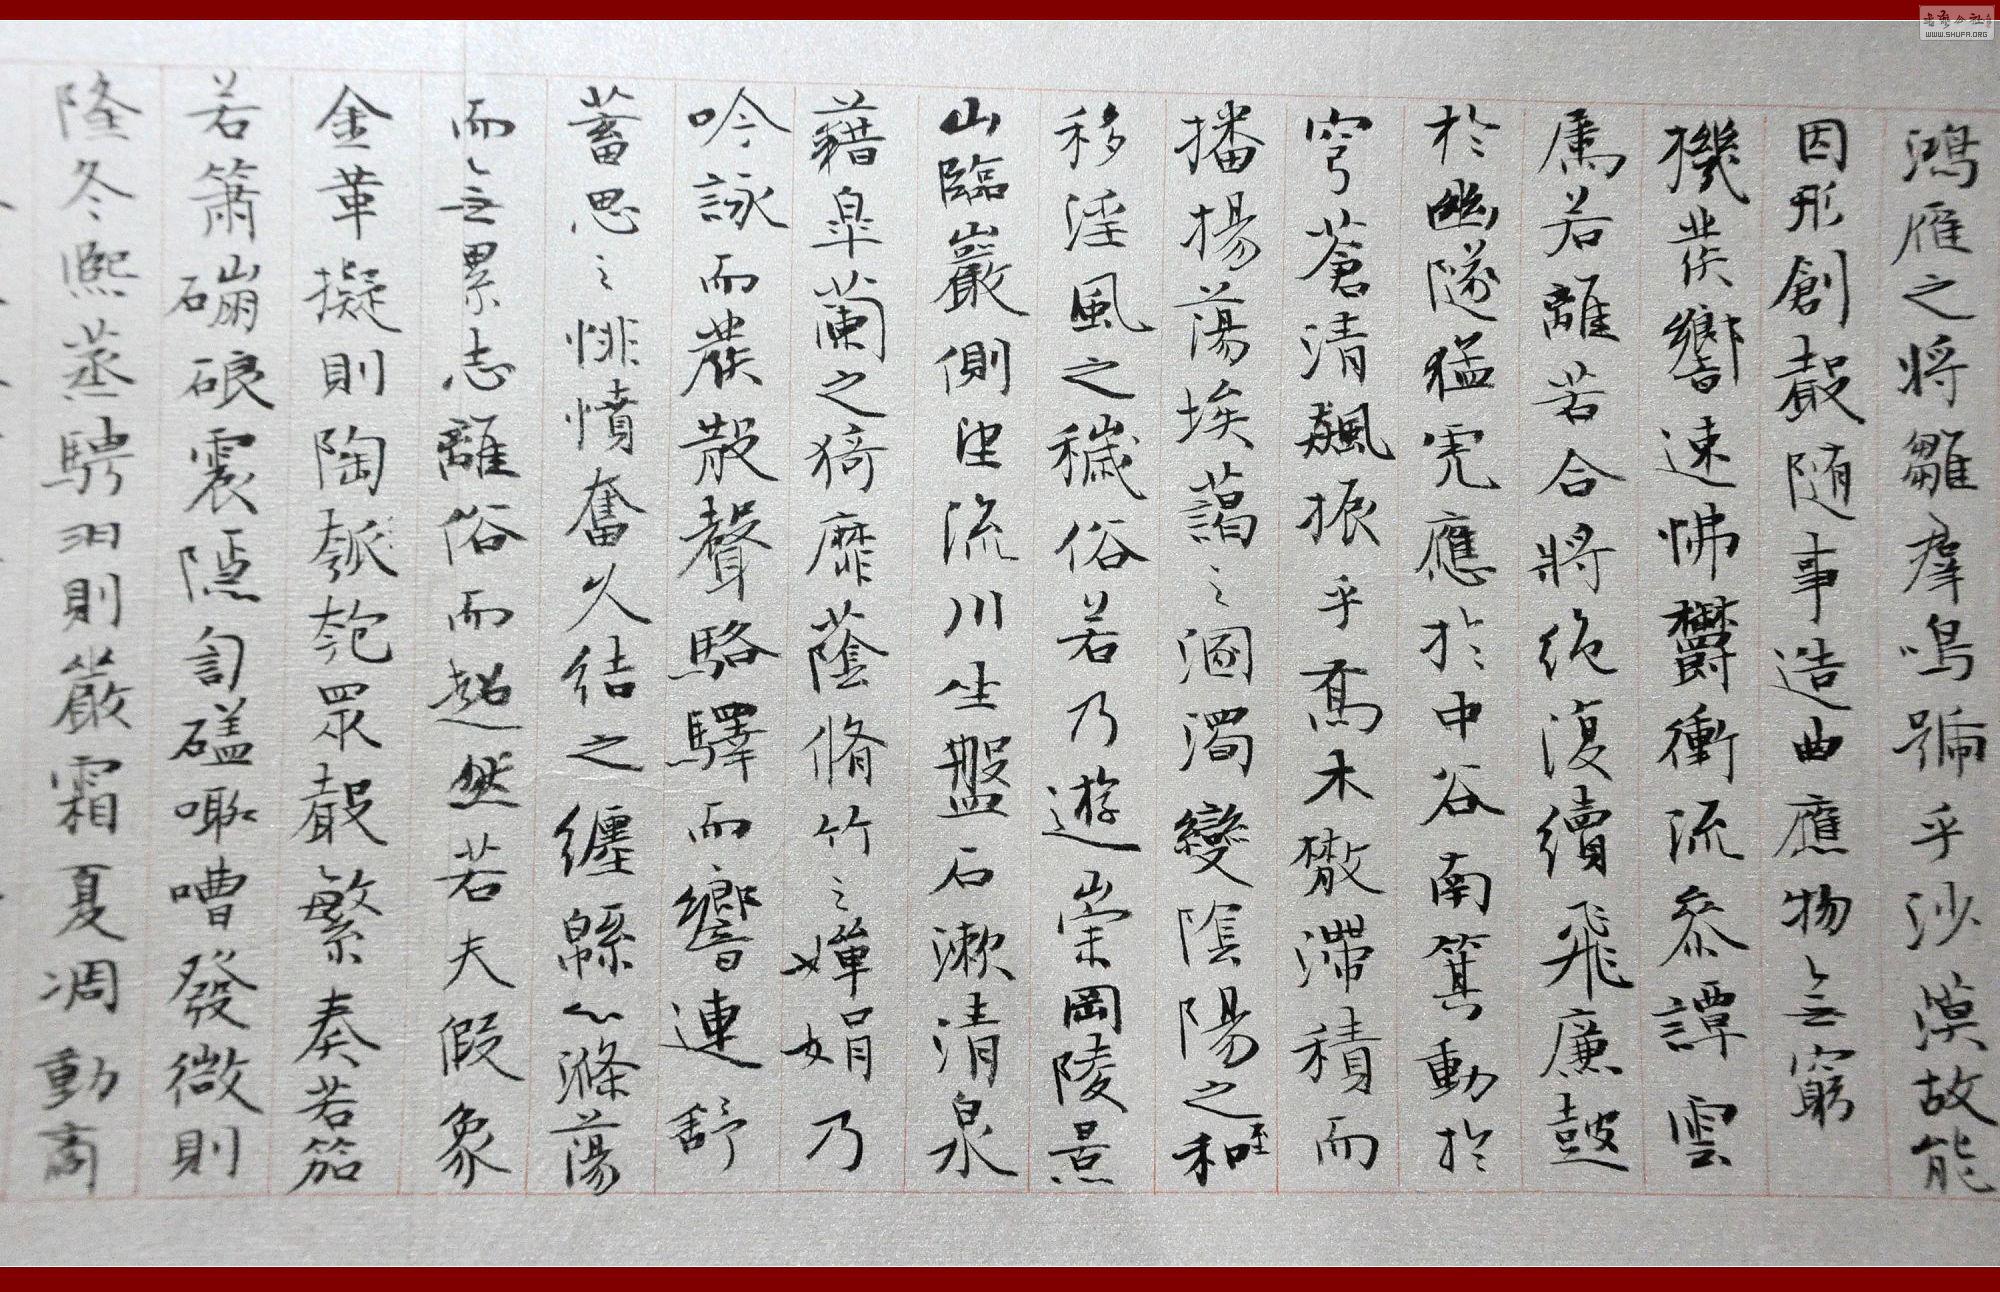 鴻雁之将雛群鳴號乎沙漠故能
因形創聲随事造曲應物無窮
機發響速怫鬱衝流參譚雲
屬若離若合將絶復續飛廉鼓
於幽隧猛虎應於中谷南箕動於
穹蒼清飆振乎喬木散滯積而
播揚蕩埃藹之溷濁變陰陽之和至
移淫風之穢俗若乃遊崇岡陵景
山臨巖側望流川坐盤石漱清泉
藉皐蘭之猗靡蔭脩竹之嬋娟乃
吟詠而發散聲駱驛而響連舒
蓄思之悱憤奮久結之纏緜心滌蕩
而無累志離俗而超然若夫假象
金革擬則陶匏衆聲繁奏若笳
若簫磞硠震隱訇磕唧嘈發微則
隆冬熙蒸騁羽則嚴霜夏凋動商
書法公社
WWW.SHUFA.ORG